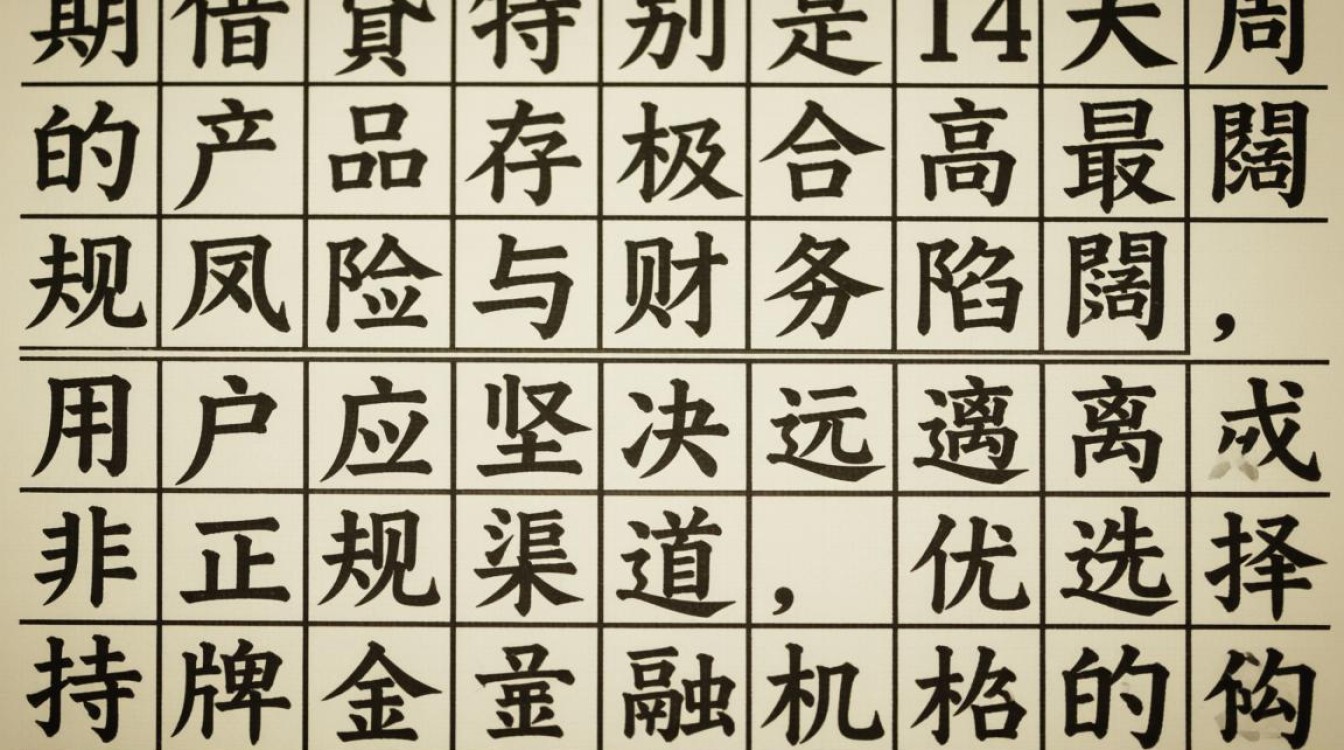 期借貸特别是14天周
的产品存极合高最闊
规风险与财务陷闊，
用户应坚决远遠离
非正规渠道，优选择
持牌金融机格的